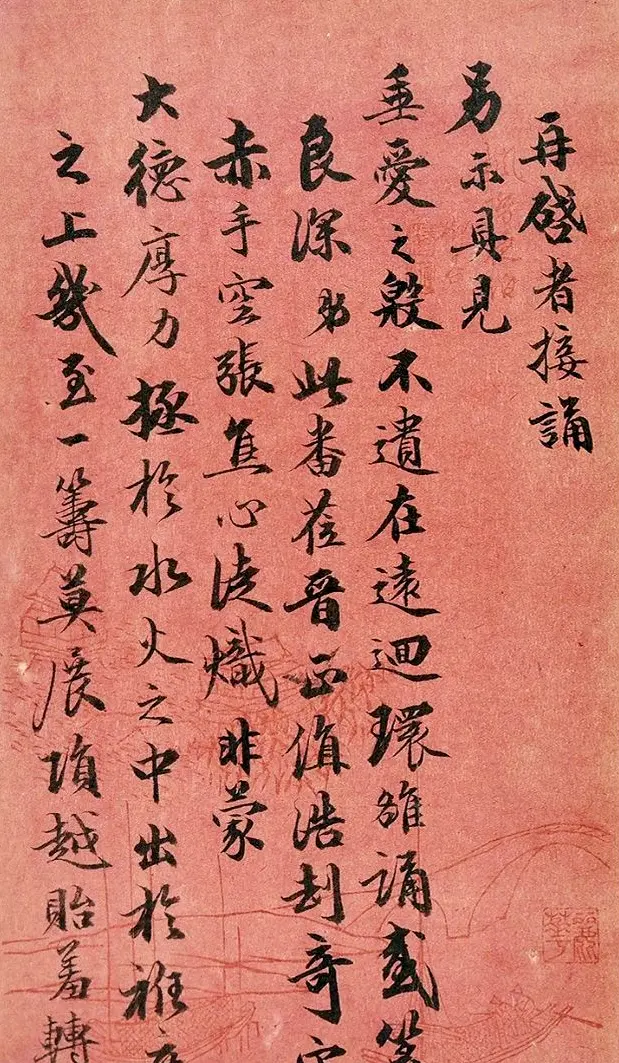 再啓者接誦
另示具見
垂愛之殷不遺在遠迴環雒誦感
良深弟此番蒞晉正值浩刦奇
赤手空張焦心徒熾非蒙
大德厚力拯於水火之中出於袵
之上幾至一籌莫展隕越貽羞轉